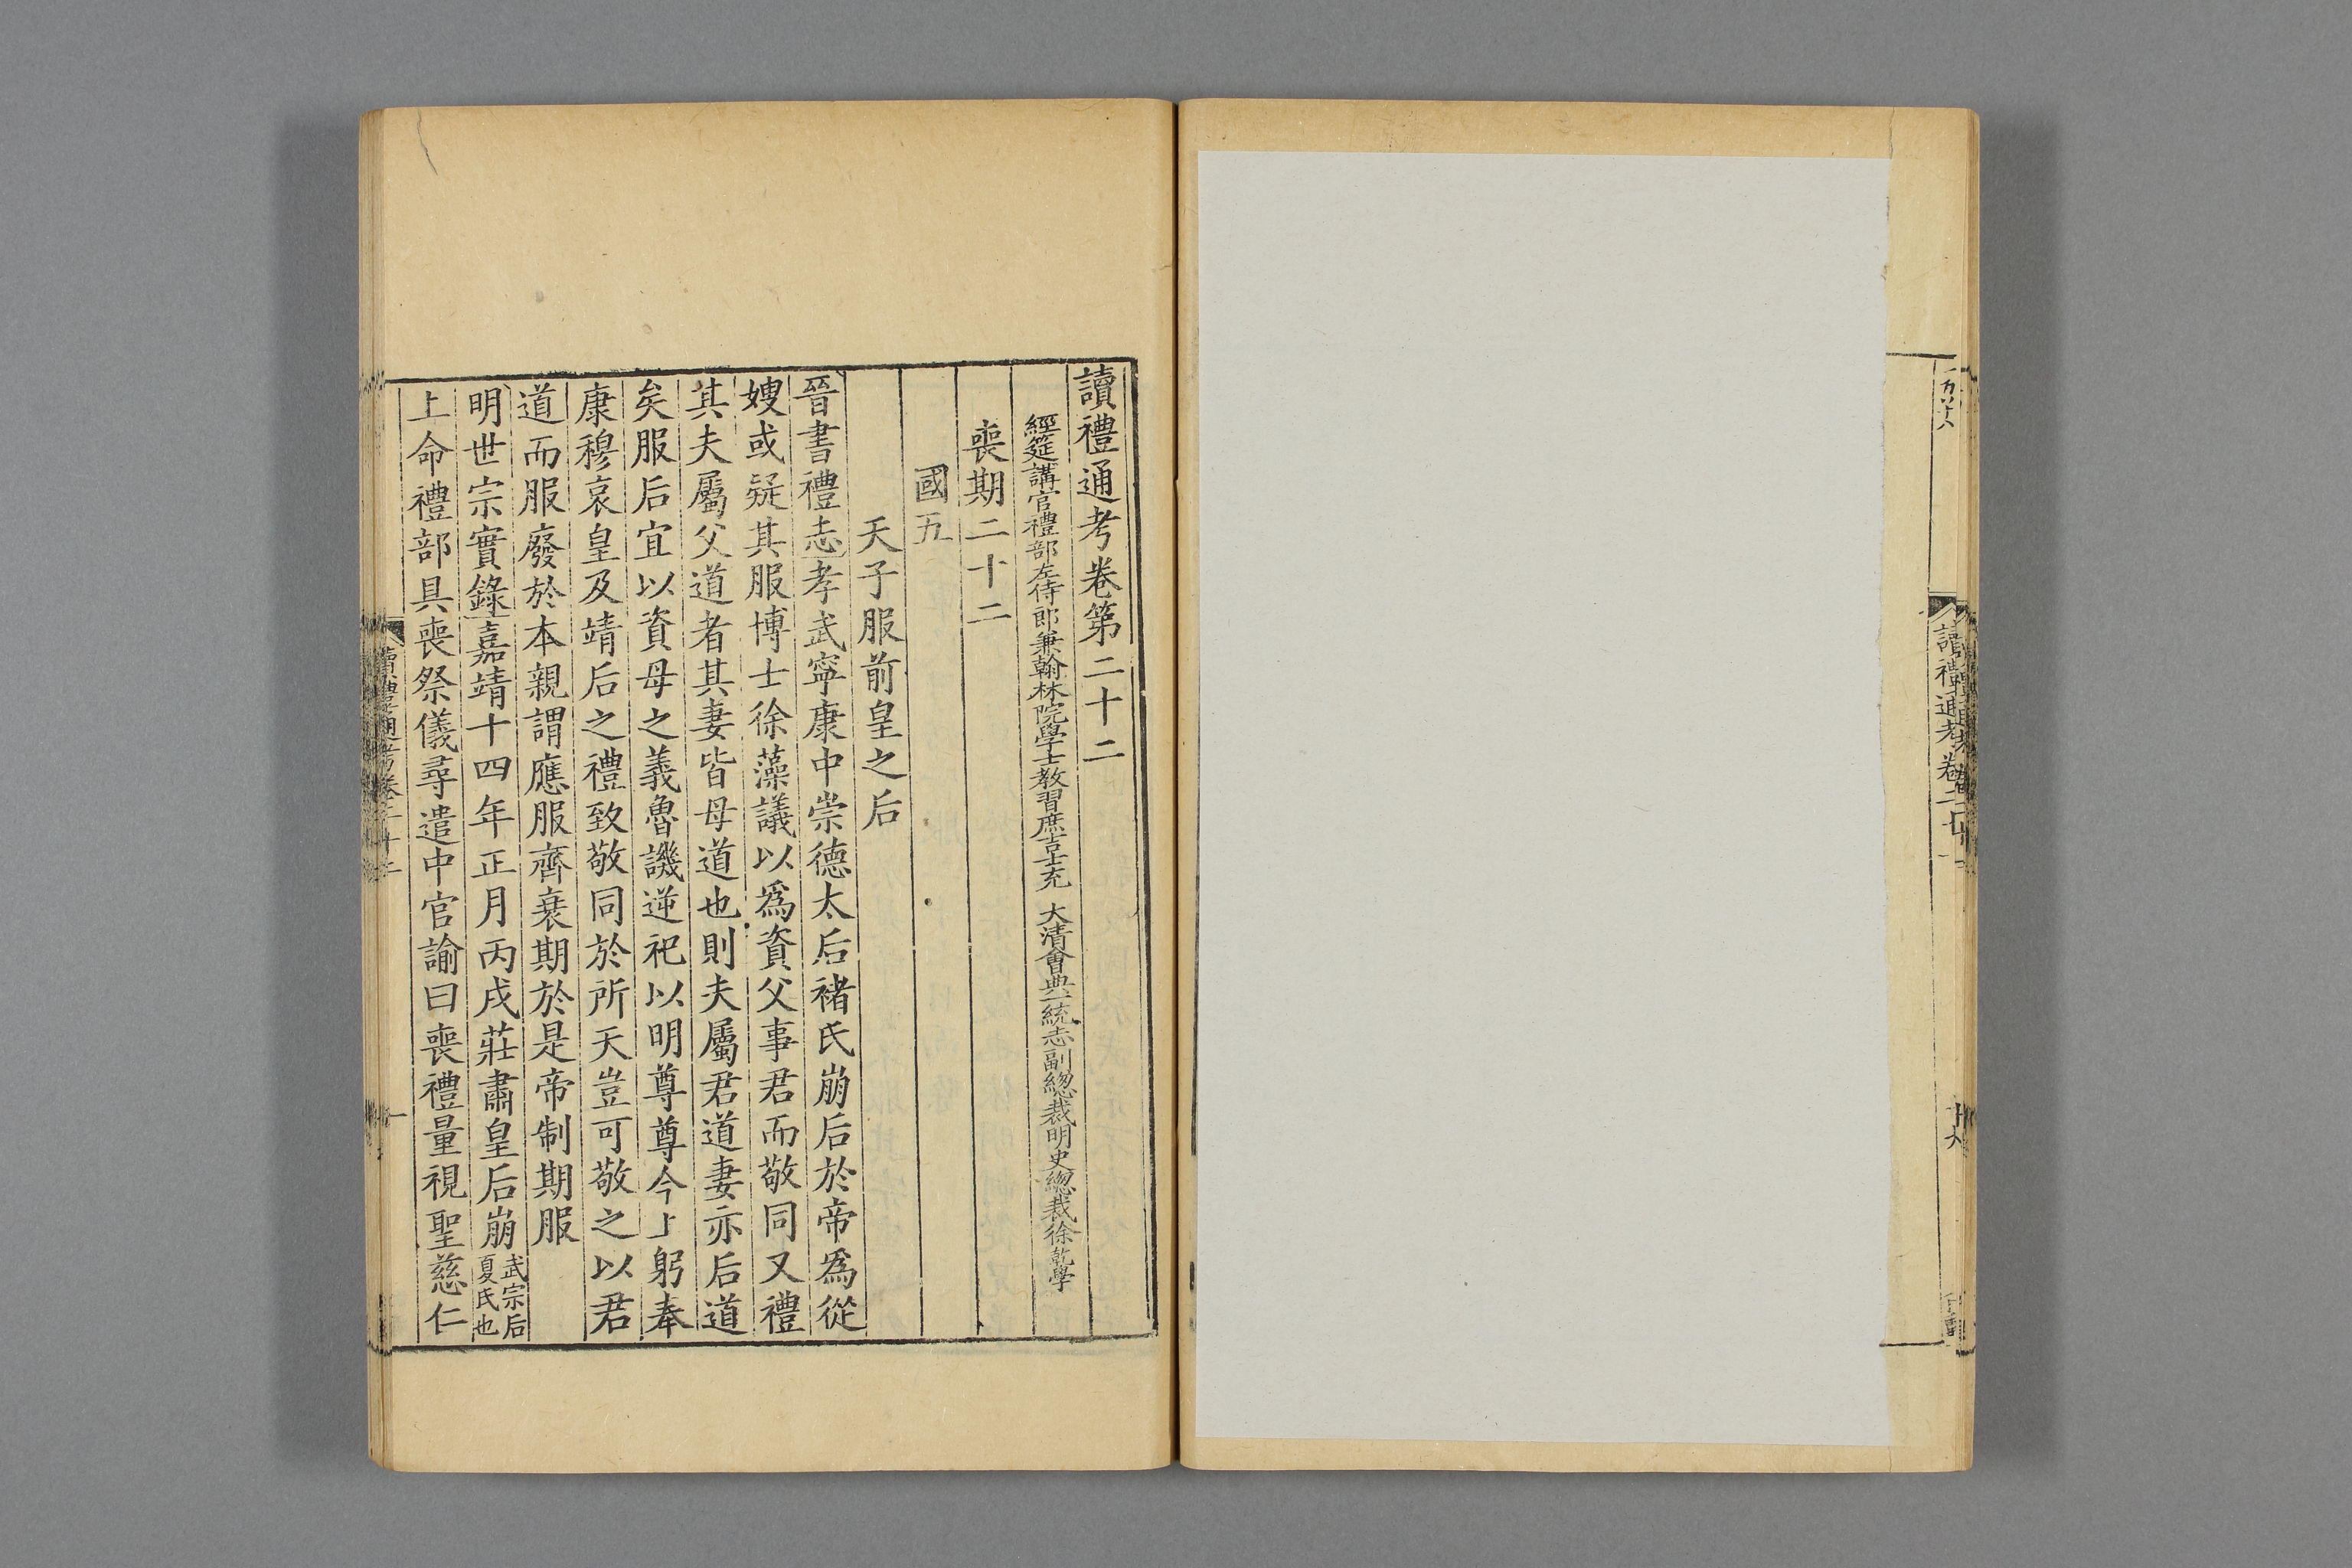 讀禮通考卷第二十二
經筵講官禮部左侍郎兼翰林院學士教習庶吉士充 大清會典一統志副總裁明史總裁徐乾學
喪期二十二
國五
天子服前皇之后
晉書禮志孝武寧康中崇德太后褚氏崩后於帝爲從
嫂或疑其服博士徐藻議以爲資父事君而敬同又禮
其夫屬父道者其妻皆母道也則夫屬君道妻亦后道
矣服后宜以資母之義魯譏逆祀以明尊尊今上躬奉
康穆哀皇及靖后之禮致敬同於所天豈可敬之以君
道而服廢於本親謂應服齊衰期於是帝制期服
明世宗實錄嘉靖十四年正月丙戌莊肅皇后崩武宗后夏氏也
上命禮部具喪祭儀尋遣中官諭曰喪禮量視聖慈仁
讀禮通考卷二十二
一
讀禮通考卷二十一